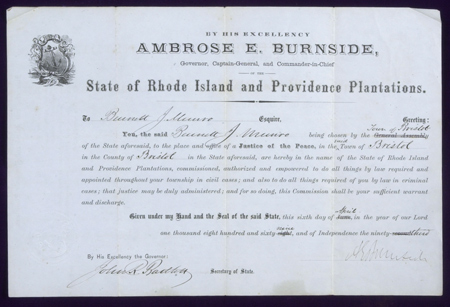 BY HIS EXCELLENCY
AMBROSE E. BURNSIDE,
Governor, Captain-General, and Commander-in-Chief
OF THE
State of Rhode Island and Providence Plantations.
To Bennett J. Munro Esquire, Greeting:
You, the said Bennett J. Munro being chosen by the General Assembly Town of Bristol
of the State aforesaid, to the place and office of a Justice of the Peace, in the said Town of Bristol
in the County of Bristol, in the State aforesaid, are hereby in the name of the State of Rhode Island
and Providence Plantations, commissioned, authorized and empowered to do all things by law required and
appointed throughout your township in civil cases; and also to do all things required of you by law in criminal
cases; that justice may be duly administered; and for so doing, this Commission shall be your sufficient warrant
and discharge.
Given under my Hand and the Seal of the said State, this sixth day of April in the year of our Lord
one thousand eight hundred and sixty- eight, and of Independence the ninety- third
By His Excellency the Governor:
John R. Bartlett Secretary of State.
A E Burnside